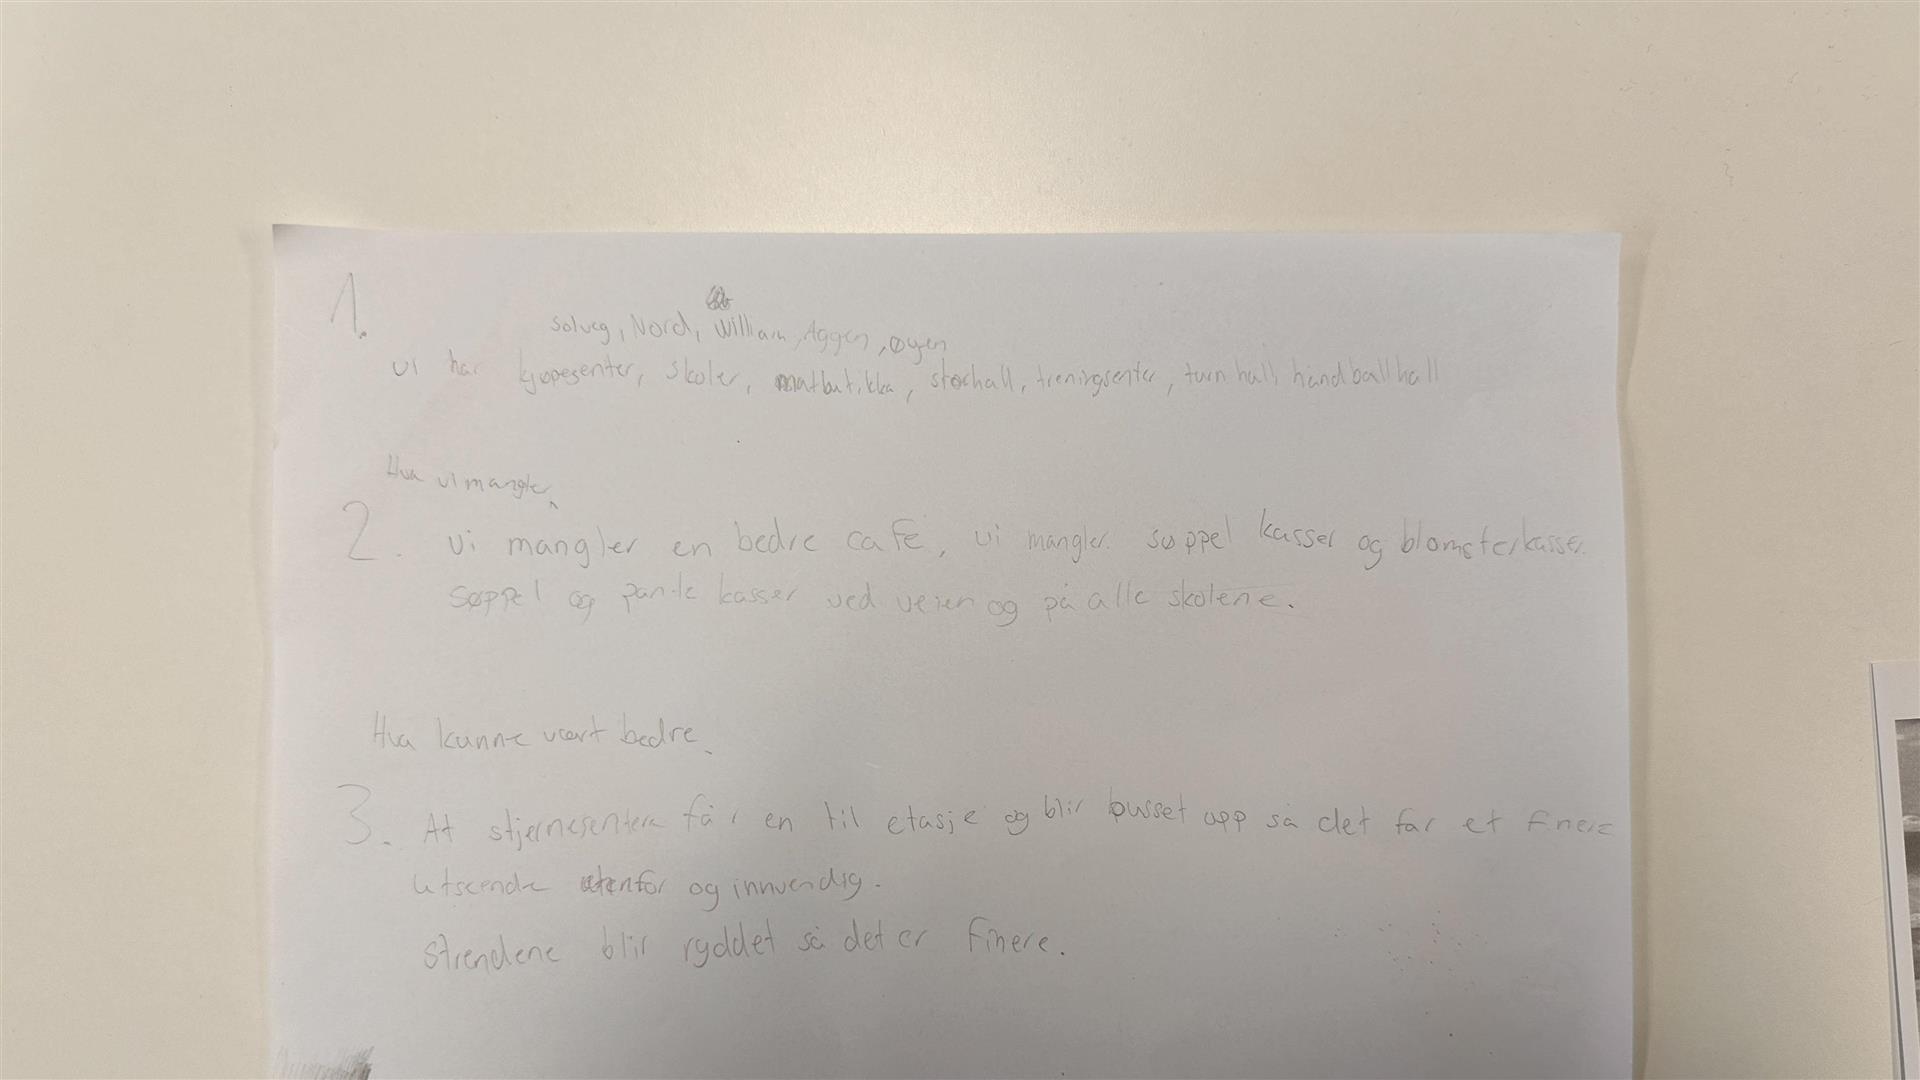 1.
Solveg, Nord, William, Aggen, Øyen
vi har kjøpesenter, skoler, matbutikka, storhall, treningsenter, turnhall, håndballhall
Hva vi mangler
2. vi mangler en bedre cafe, vi mangler søppel kasser og blomsterkasser.
søppel og pante kasser ved veien og på alle skolene.
Hva kunne vært bedre
3. At stjernesentera får en til etasje og blir pusset opp så det får et finere
utseende utenfor og innvendig.
strendene blir ryddet så det er finere.